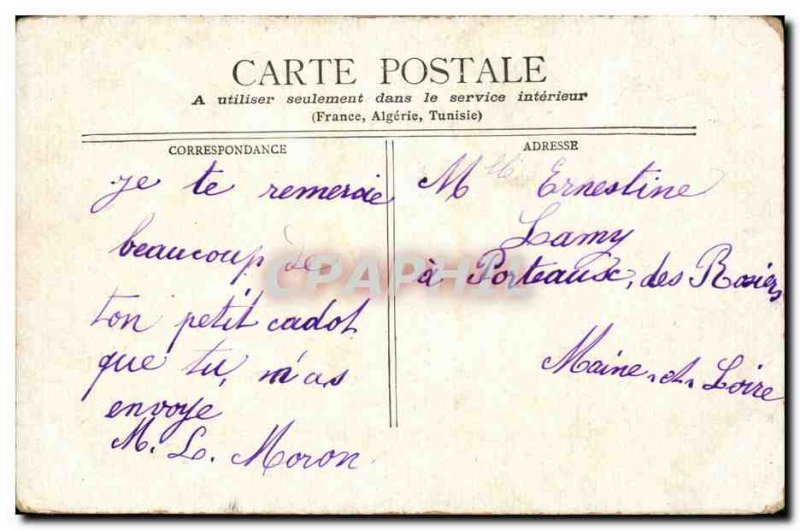 CARTE POSTALE
A utiliser seulement dans le service intérieur
(France, Algérie, Tunisie)
CORRESPONDANCE
je te remercie
beaucoup de
ton petit cadot
que tu m'as
envoye
M. L. Moron
ADRESSE
Mlle Ernestine
Lamy
à Porteaux, des Rosiers
Maine-et-Loire
CPAPHIL